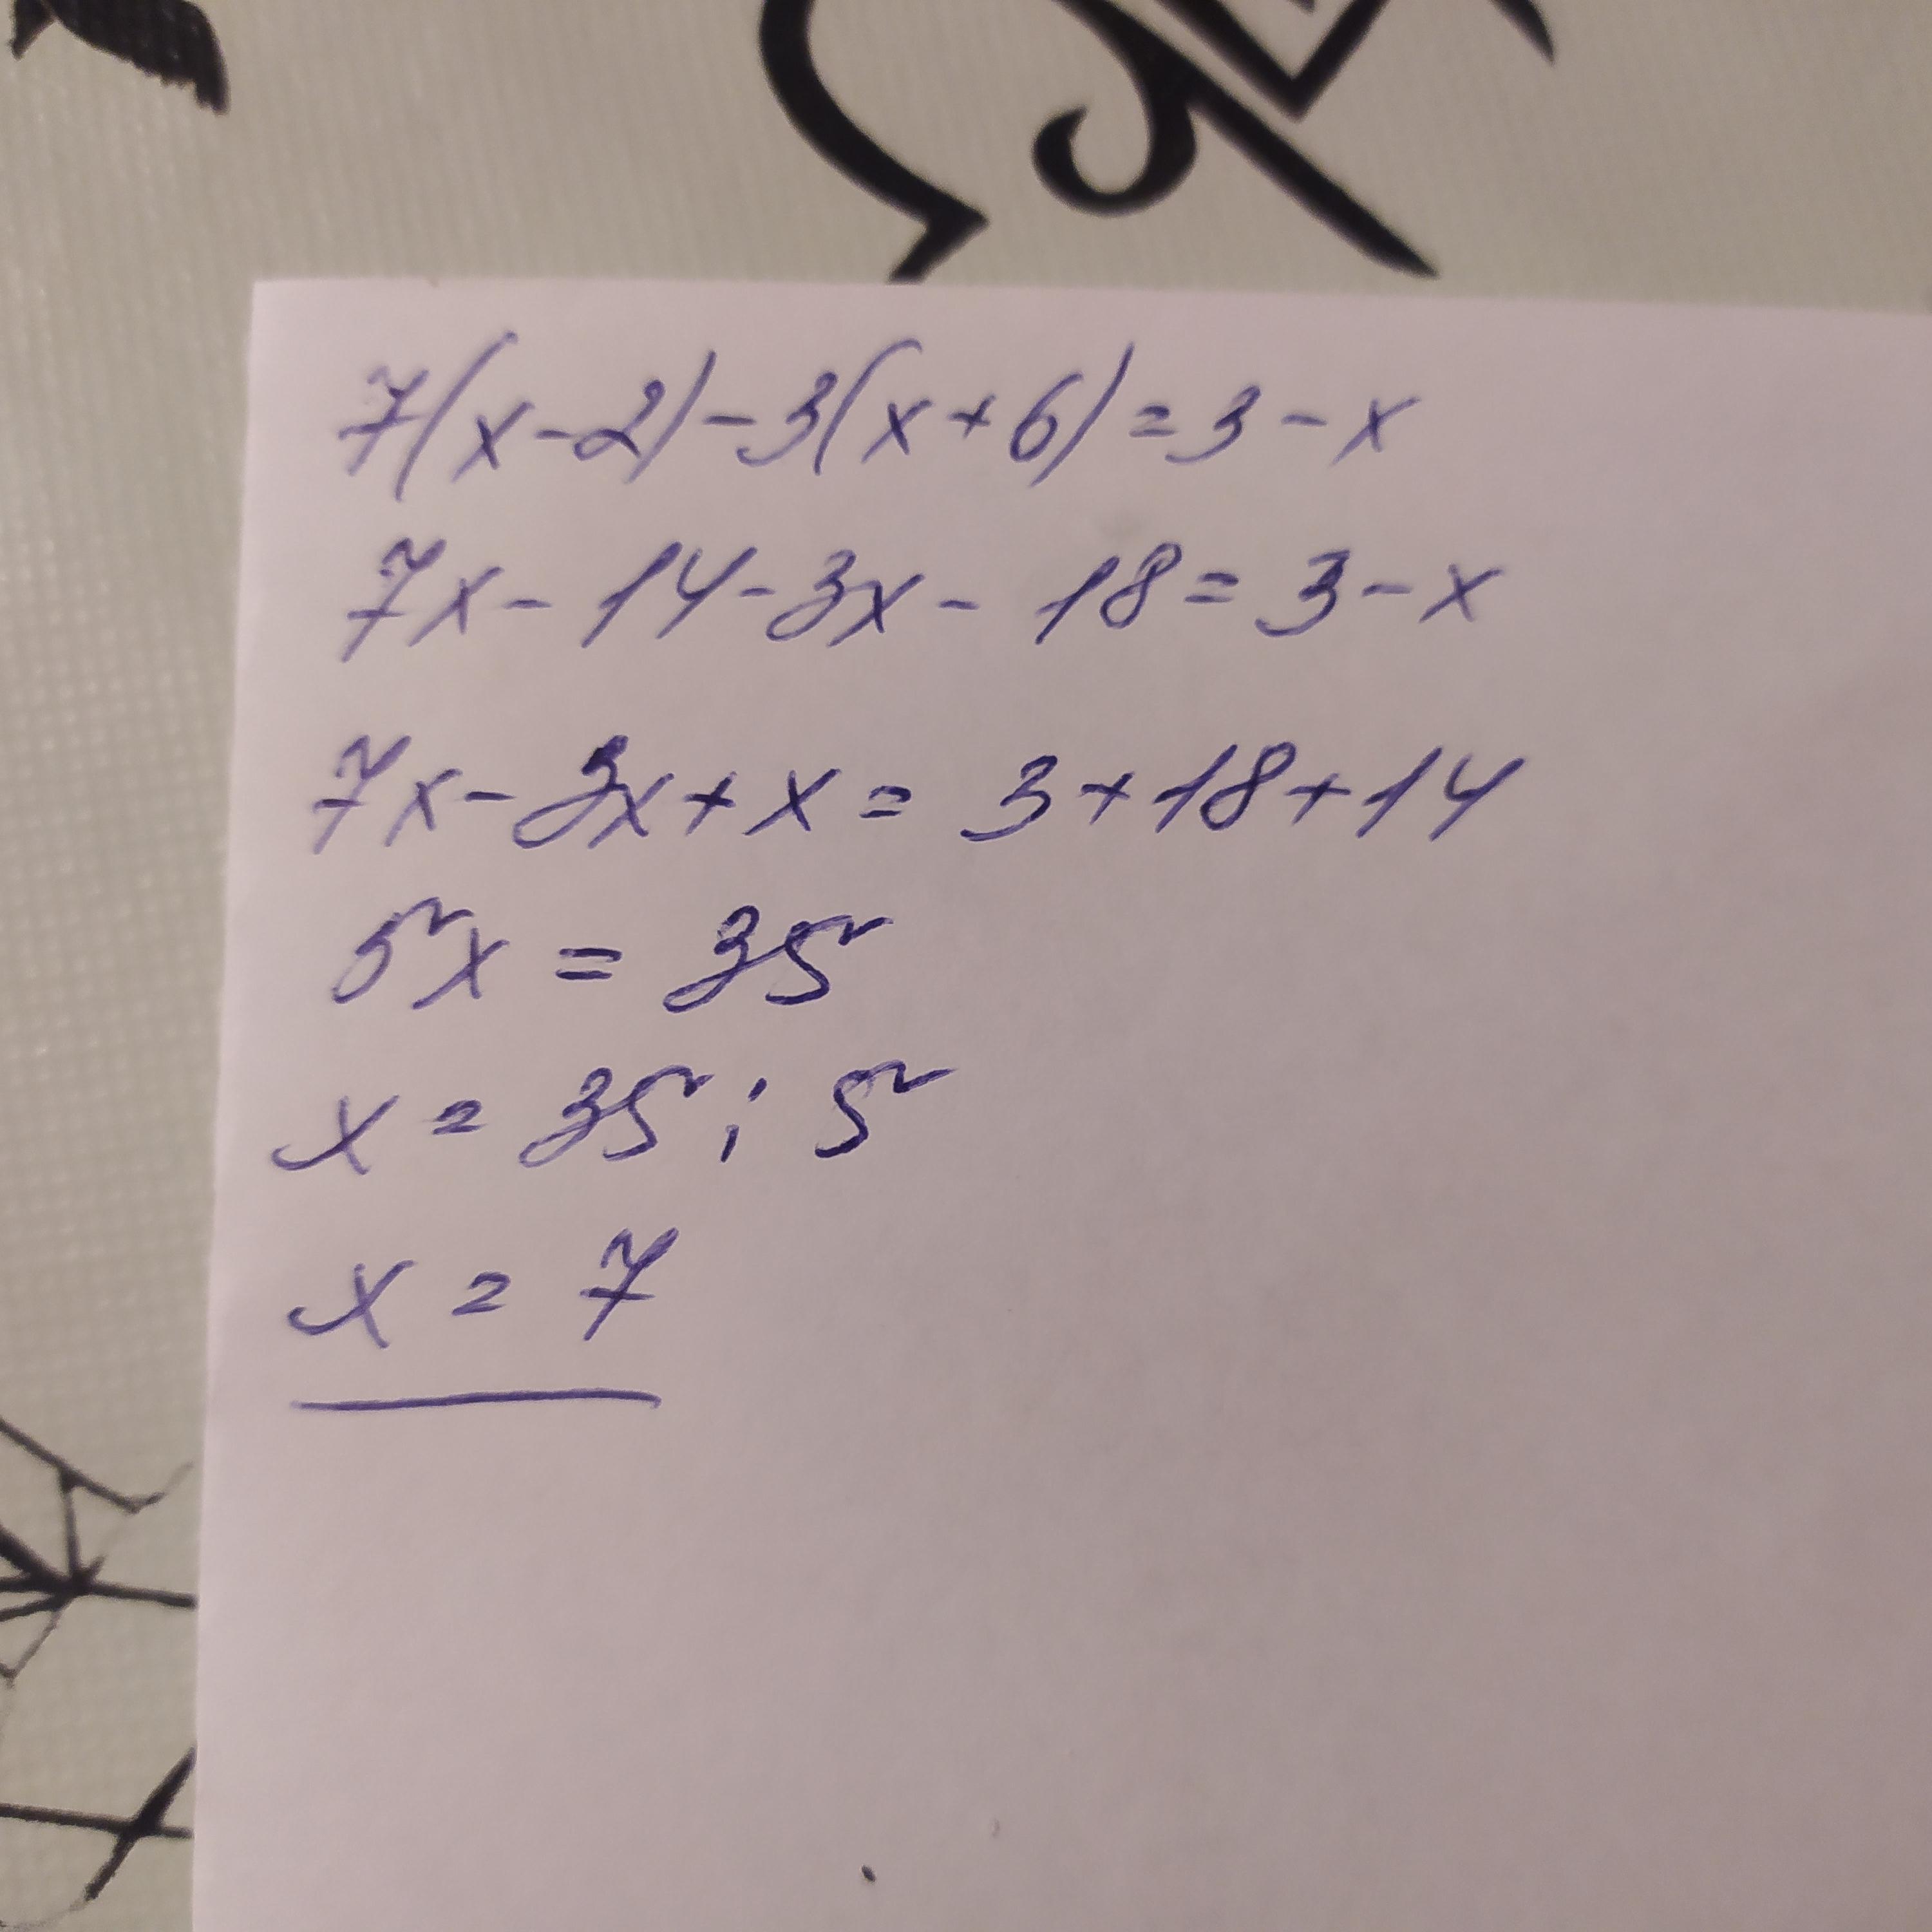 7(x-2)-3(x+6)=3-x
7x-14-3x-18=3-x
7x-3x+x=3+18+14
5x=35
x=35:5
x=7